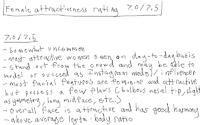 Female attractiveness rating 7.0/7.5
7.0/7.5
- Somewhat uncommon
- most attractive women seen on day-to-day basis
- stand out from the crowd and may be able to
model or succeed as Instagram model/influencer
- most facial features are feminine and attractive
but possess a few flaws (bulbous nose tip, slight
asymmetry, long midface, etc.)
- overall face is attractive and has good harmony
- above average legs:body ratio